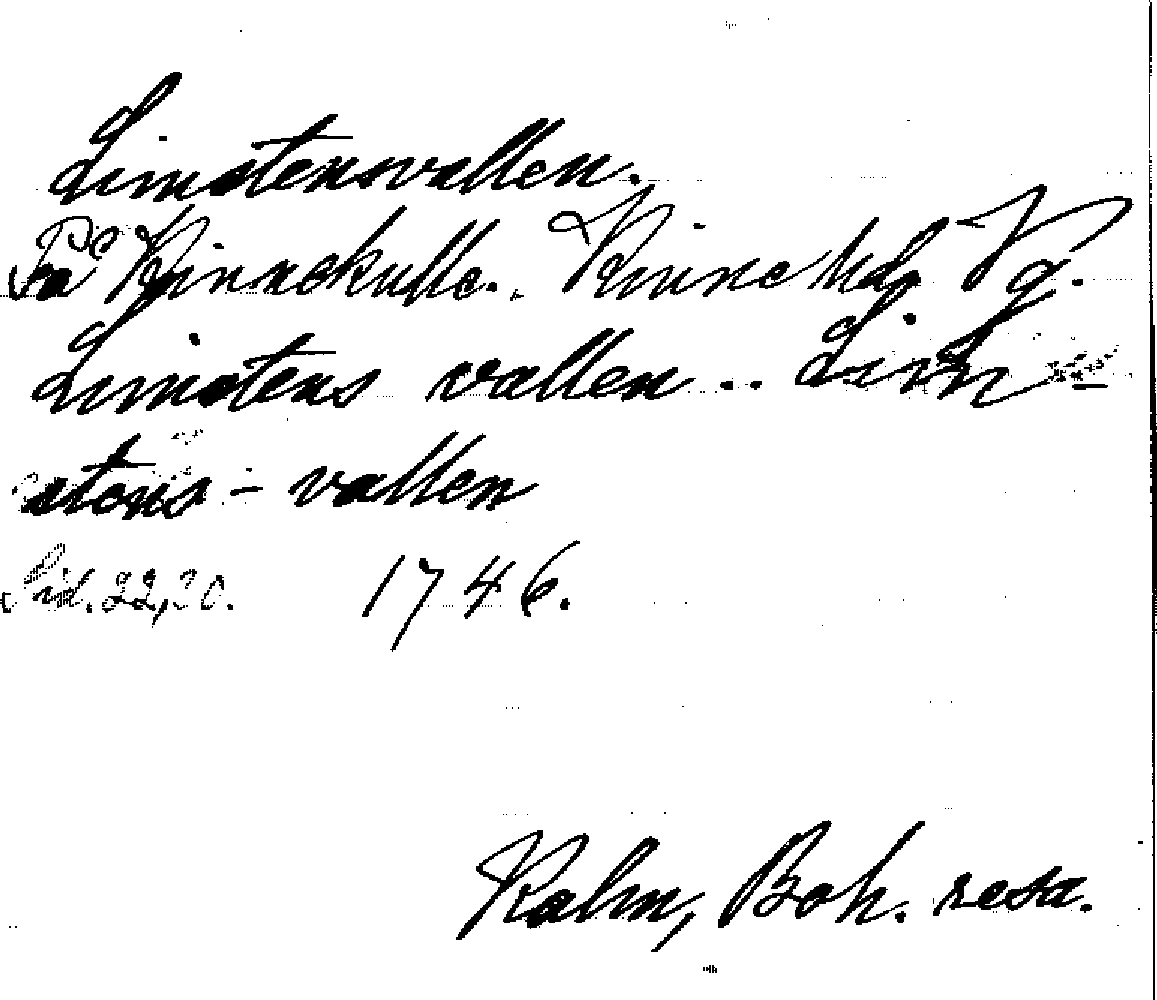 Limstensvallen.
På Kinnekulle. Kinne hd. Vg.
Limstens vallen .. Lim-
stens - vallen
Sid. 22, 30. 1746.
Kalm, Boh. resa.